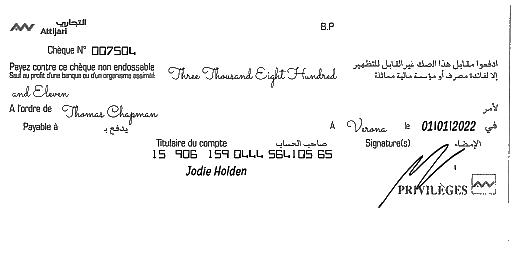 التجاري
Attijari
B.P
Chèque N° 007504
Payez contre ce chèque non endossable
Sauf au profit d'une banque ou d'un organisme assimilé
Three Thousand Eight Hundred
ادفعوا مقابل هذا الصك غير القابل للتظهير
إلا لفائدة مصرف أو مؤسسة مالية مماثلة
and Eleven
A l'ordre de Thomas Chapman
لأمر
Payable à يدفع بـ
A Verona le 01/01/2022 في
Titulaire du compte صاحب الحساب
Signature(s) الإمضاء
15 906 159 0444 564105 65
Jodie Holden
PRIVILÈGES